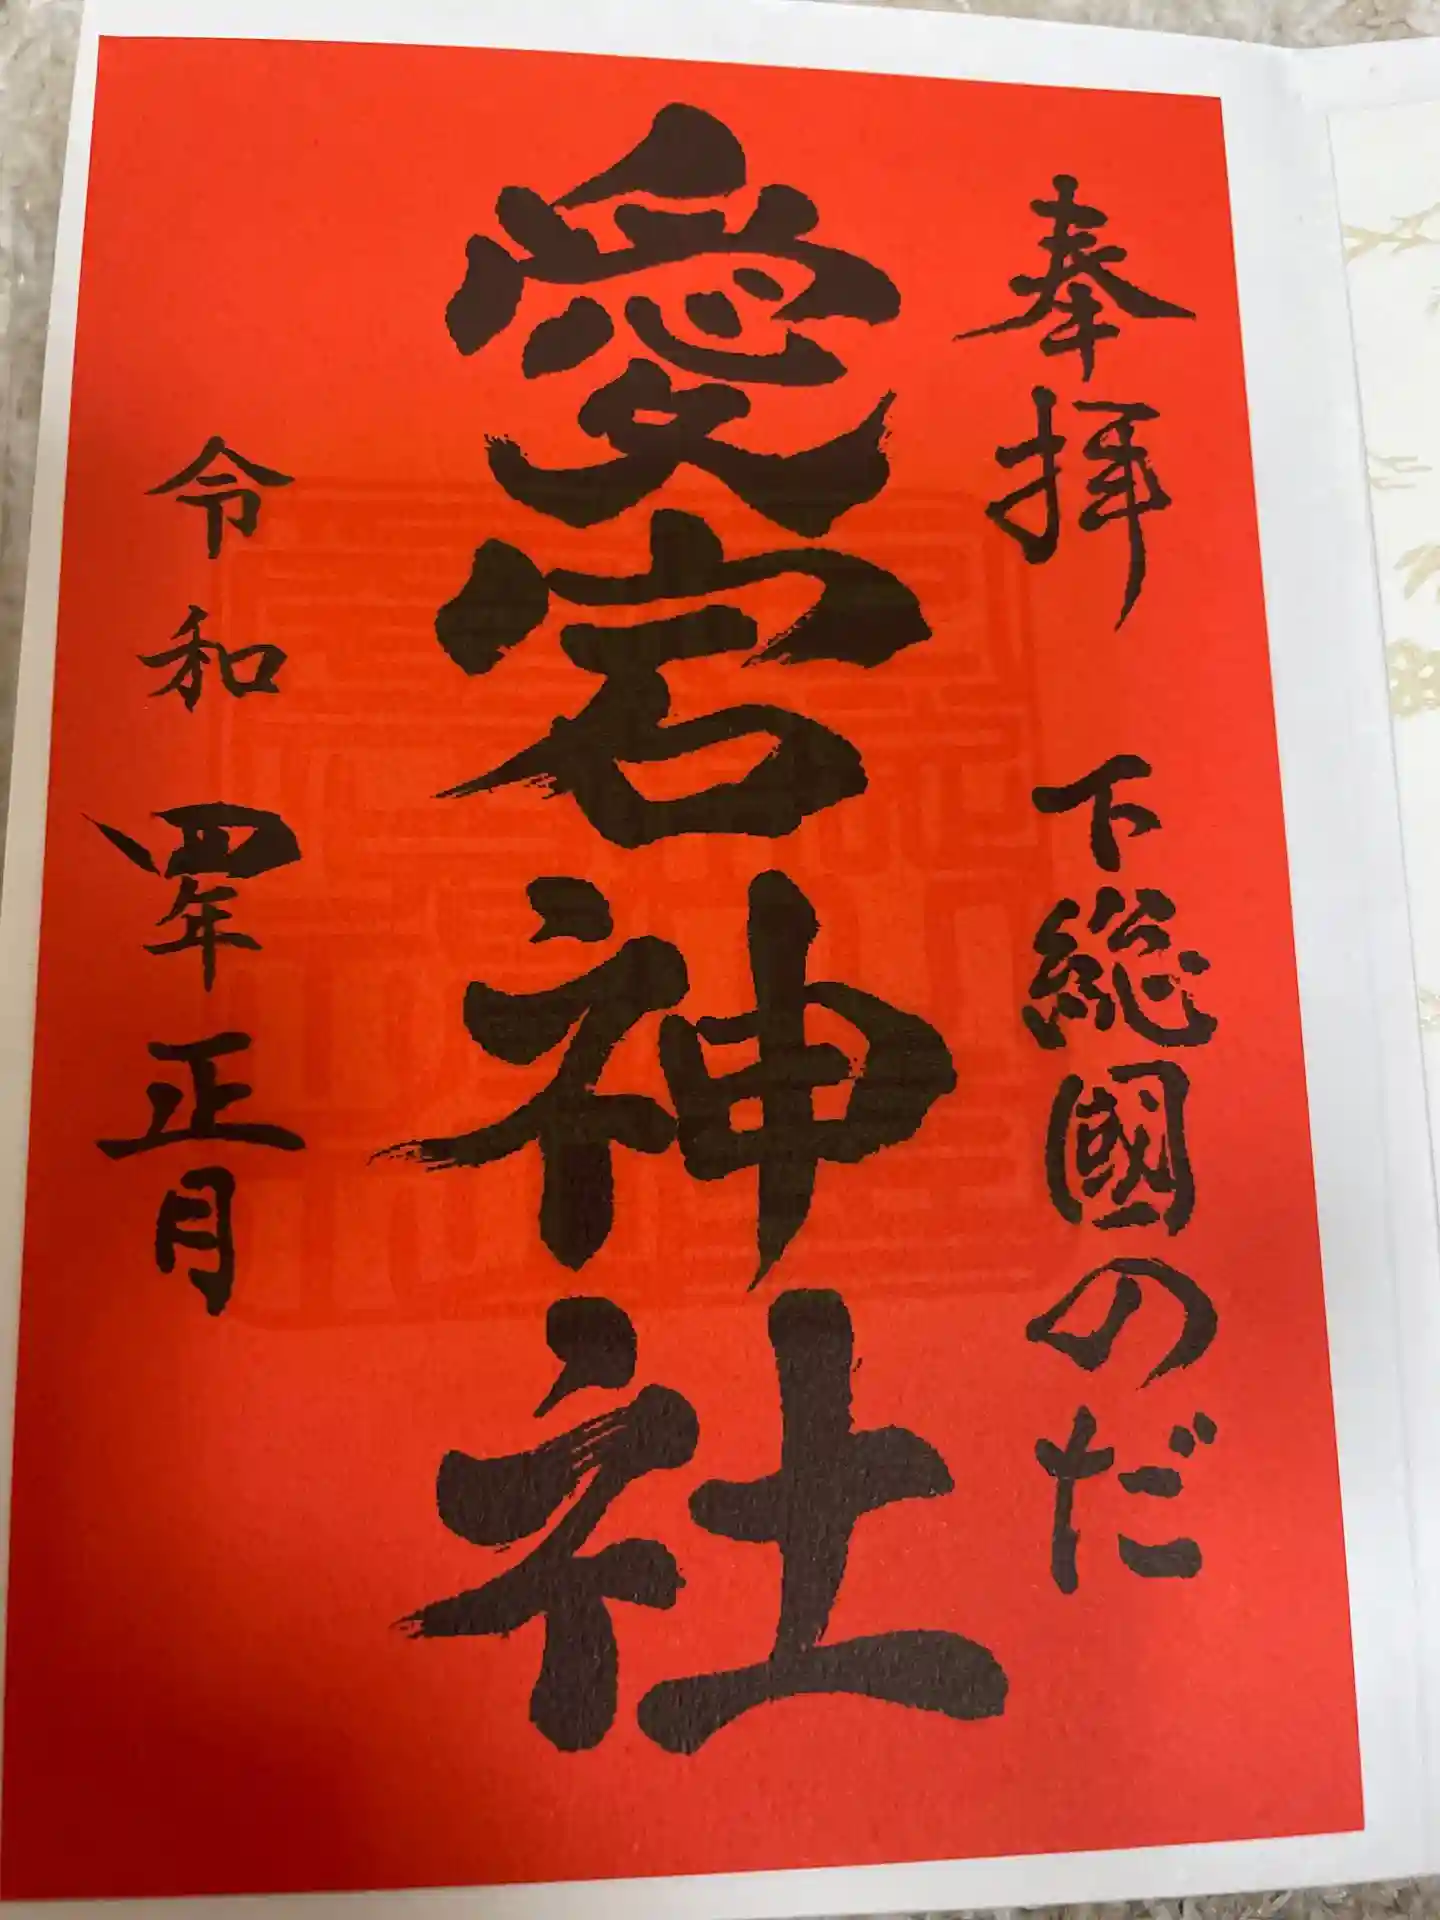 奉拝 下総國のだ
愛宕神社
令和四年正月